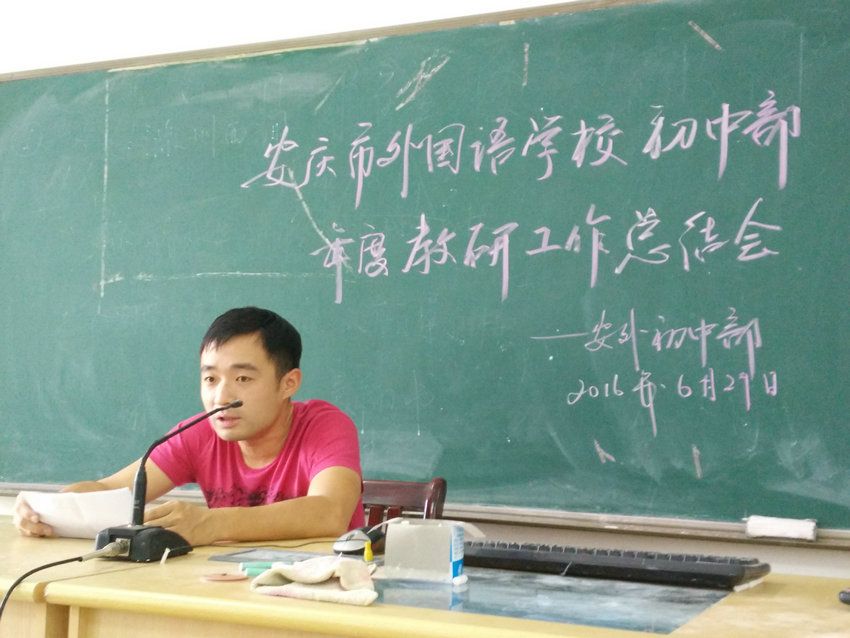 安庆市外国语学校初中部
年度教研工作总结会
—安外初中部
2016年.6月29日